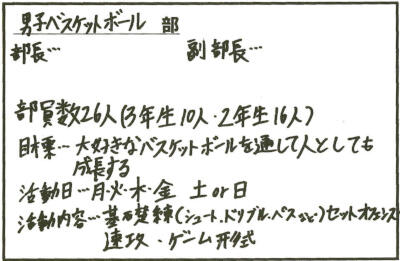 男子バスケットボール 部
部長… 副部長…
部員数26人(3年生10人・2年生16人)
目標…大好きなバスケットボールを通して人としても
成長する
活動日…月・火・木・金 土or日
活動内容…基礎練(シュート、ドリブル、パスなど)セットオフェンス
速攻・ゲーム形式